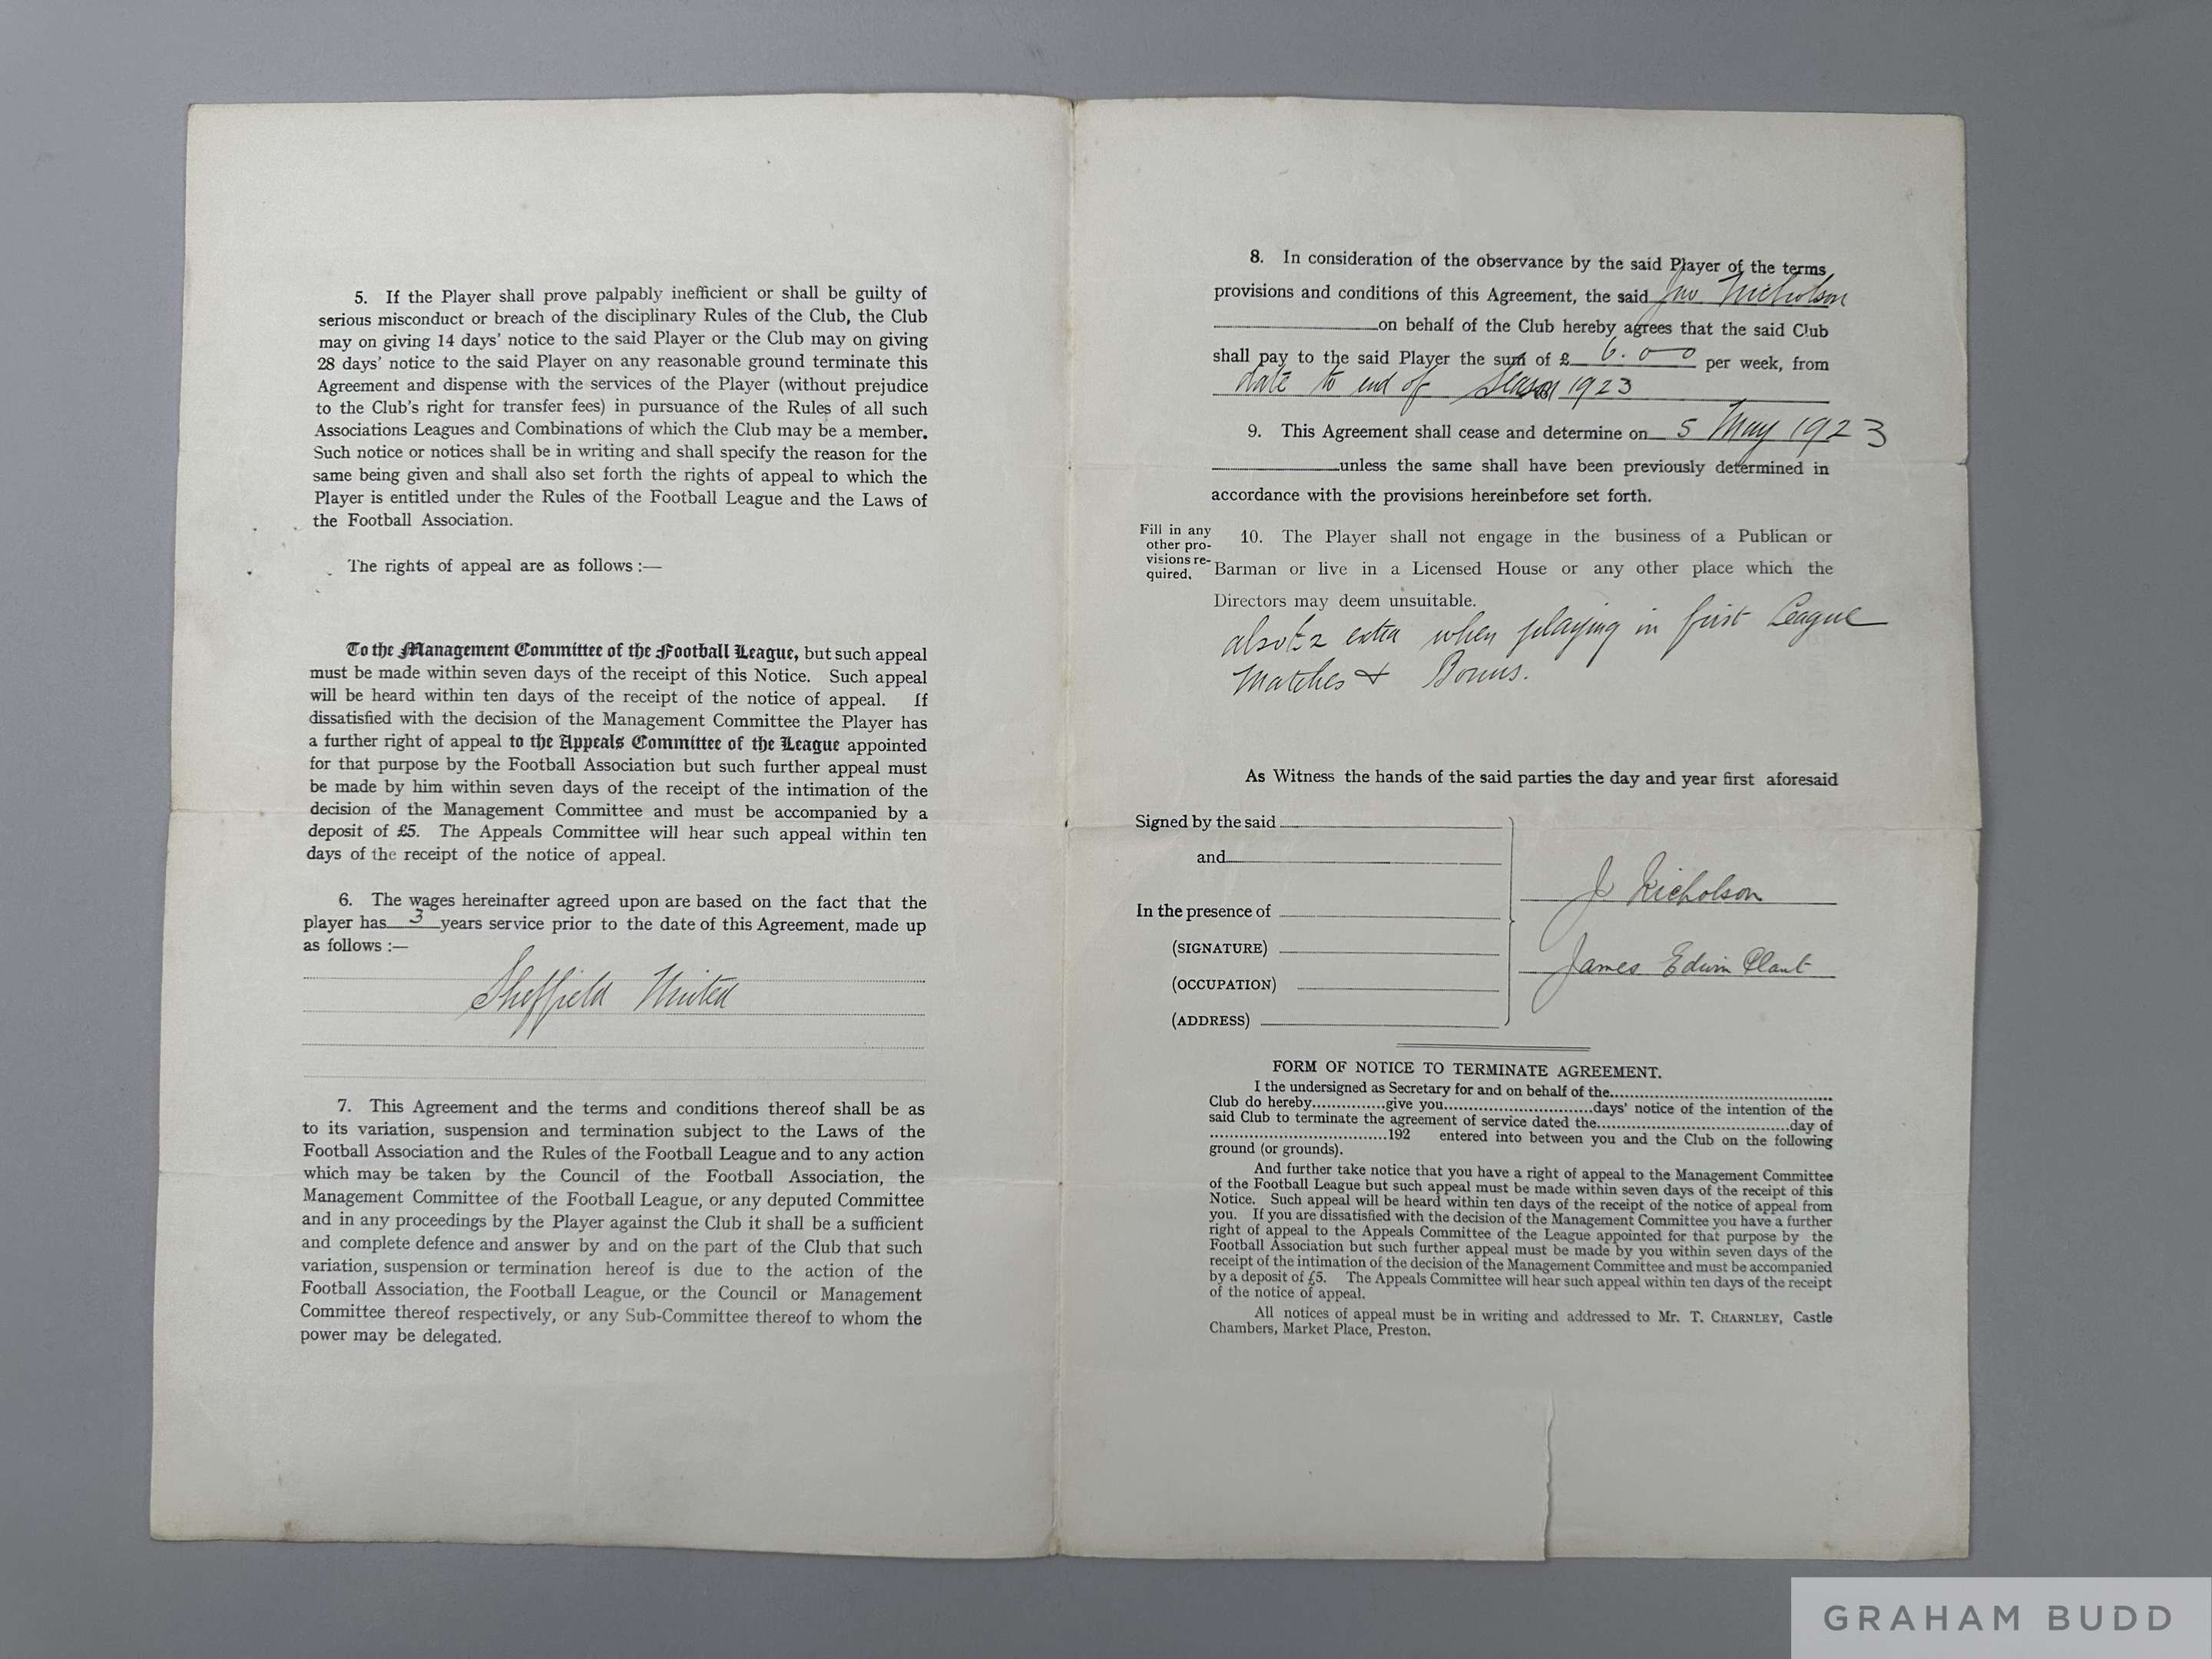 5. If the Player shall prove palpably inefficient or shall be guilty of
serious misconduct or breach of the disciplinary Rules of the Club, the Club
may on giving 14 days' notice to the said Player or the Club may on giving
28 days' notice to the said Player on any reasonable ground terminate this
Agreement and dispense with the services of the Player (without prejudice
to the Club's right for transfer fees) in pursuance of the Rules of all such
Associations Leagues and Combinations of which the Club may be a member.
Such notice or notices shall be in writing and shall specify the reason for the
same being given and shall also set forth the rights of appeal to which the
Player is entitled under the Rules of the Football League and the Laws of
the Football Association.
The rights of appeal are as follows :—
To the Management Committee of the Football League, but such appeal
must be made within seven days of the receipt of this Notice. Such appeal
will be heard within ten days of the receipt of the notice of appeal. If
dissatisfied with the decision of the Management Committee the Player has
a further right of appeal to the Appeals Committee of the League appointed
for that purpose by the Football Association but such further appeal must
be made by him within seven days of the receipt of the intimation of the
decision of the Management Committee and must be accompanied by a
deposit of £5. The Appeals Committee will hear such appeal within ten
days of the receipt of the notice of appeal.
6. The wages hereinafter agreed upon are based on the fact that the
player has 3 years service prior to the date of this Agreement, made up
as follows :—
Sheffield United
7. This Agreement and the terms and conditions thereof shall be as
to its variation, suspension and termination subject to the Laws of the
Football Association and the Rules of the Football League and to any action
which may be taken by the Council of the Football Association, the
Management Committee of the Football League, or any deputed Committee
and in any proceedings by the Player against the Club it shall be a sufficient
and complete defence and answer by and on the part of the Club that such
variation, suspension or termination hereof is due to the action of the
Football Association, the Football League, or the Council or Management
Committee thereof respectively, or any Sub-Committee thereof to whom the
power may be delegated.
8. In consideration of the observance by the said Player of the terms
provisions and conditions of this Agreement, the said Jno Nicholson
on behalf of the Club hereby agrees that the said Club
shall pay to the said Player the sum of £ 6.00 per week, from
date to end of season 1923
9. This Agreement shall cease and determine on 5 May 1923
unless the same shall have been previously determined in
accordance with the provisions hereinbefore set forth.
Fill in any
other pro-
visions re-
quired.
10. The Player shall not engage in the business of a Publican or
Barman or live in a Licensed House or any other place which the
Directors may deem unsuitable.
also £2 extra when playing in first League
Matches & Bonus.
As Witness the hands of the said parties the day and year first aforesaid
Signed by the said
and
In the presence of
(SIGNATURE)
(OCCUPATION)
(ADDRESS)
J Nicholson
James Edwin Plant
FORM OF NOTICE TO TERMINATE AGREEMENT.
I the undersigned as Secretary for and on behalf of the
Club do hereby give you days' notice of the intention of the
said Club to terminate the agreement of service dated the day of
192 entered into between you and the Club on the following
ground (or grounds).
And further take notice that you have a right of appeal to the Management Committee
of the Football League but such appeal must be made within seven days of the receipt of this
Notice. Such appeal will be heard within ten days of the receipt of the notice of appeal from
you. If you are dissatisfied with the decision of the Management Committee you have a further
right of appeal to the Appeals Committee of the League appointed for that purpose by the
Football Association but such further appeal must be made by you within seven days of the
receipt of the intimation of the decision of the Management Committee and must be accompanied
by a deposit of £5. The Appeals Committee will hear such appeal within ten days of the receipt
of the notice of appeal.
All notices of appeal must be in writing and addressed to Mr. T. CHARNLEY, Castle
Chambers, Market Place, Preston.
GRAHAM BUDD